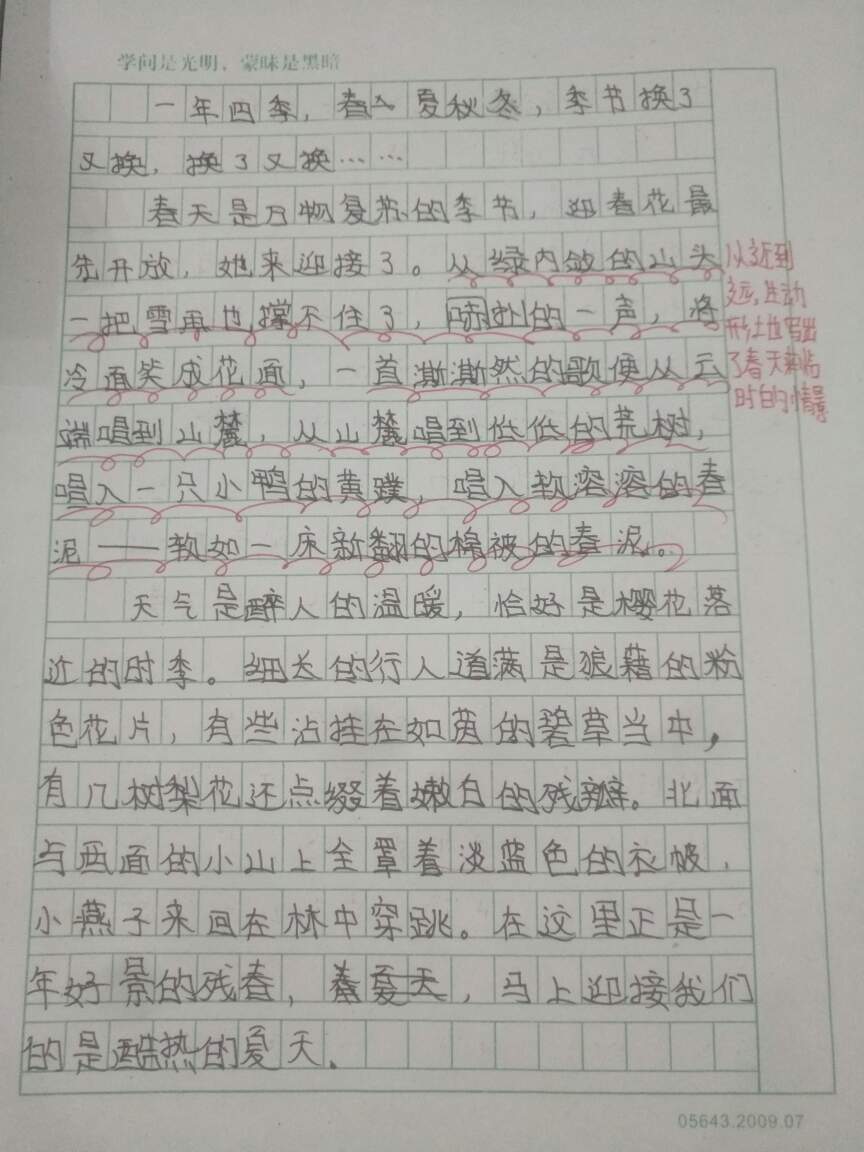 学问是光明，蒙昧是黑暗
一年四季，春 夏秋冬，季节换了
又换，换了又换……
春天是万物复苏的季节，迎春花最
先开放，她来迎接了。从绿内敛的山头
一把雪再也撑不住了，噗扑的一声，将
冷面笑成花面，一首澌澌然的歌便从云
端唱到山麓，从山麓唱到低低的荒树，
唱入一只小鸭的黄蹼，唱入软溶溶的春
泥——软如一床新翻的棉被的春泥。
天气是醉人的温暖，恰好是樱花落
近的时季。细长的行人道满是狼藉的粉
色花片，有些沾挂在如茵的碧草当中，
有几树梨花还点缀着嫩白的残瓣。北面
与西面的小山上全罩着淡蓝色的衣帔，
小燕子来回在林中穿跳。在这里正是一
年好景的残春，春夏天，马上迎接我们
的是酷热的夏天.
从近到
远，生动
形象地写出
了春天来临
时的情景
05643.2009.07